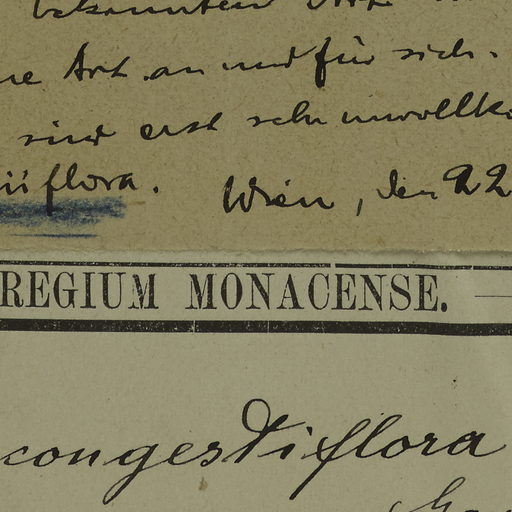 bekannten
ne Art an und für sich.
sind erst sehr unvollko
iiflora. Wien, den 22
REGIUM MONACENSE.
congestiflora